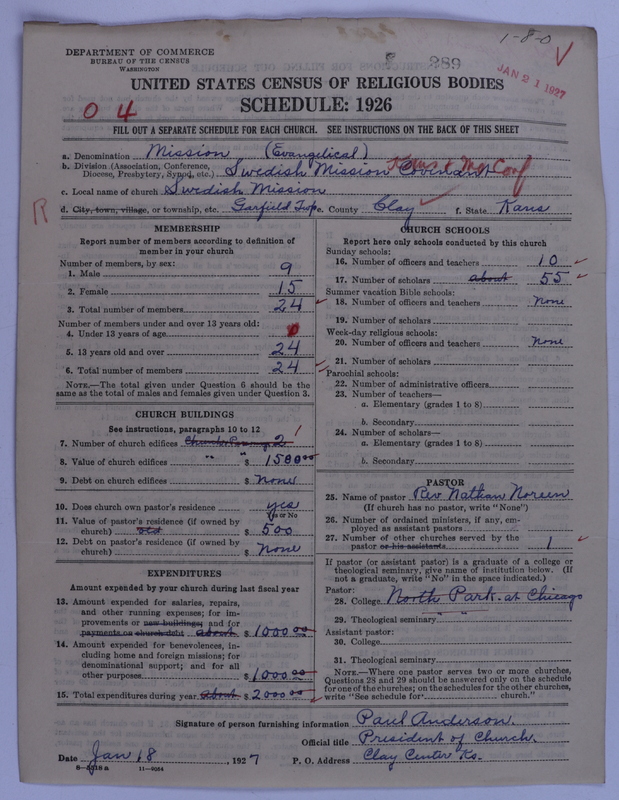 1-8-0
DEPARTMENT OF COMMERCE
BUREAU OF THE CENSUS
WASHINGTON
289
JAN 21 1927
UNITED STATES CENSUS OF RELIGIOUS BODIES
SCHEDULE: 1926
0 4
FILL OUT A SEPARATE SCHEDULE FOR EACH CHURCH. SEE INSTRUCTIONS ON THE BACK OF THIS SHEET
a. Denomination Mission (Evangelical)
b. Division (Association, Conference, Diocese, Presbytery, Synod, etc.) Swedish Mission Covenant Kans & Mo Conf
c. Local name of church Swedish Mission
R
d. City, town, village, or township, etc. Garfield Twp e. County Clay f. State Kans
MEMBERSHIP
Report number of members according to definition of
member in your church
Number of members, by sex:
1. Male 9
2. Female 15
3. Total number of members 24
Number of members under and over 13 years old:
4. Under 13 years of age 0
5. 13 years old and over 24
6. Total number of members 24
NOTE.—The total given under Question 6 should be the
same as the total of males and females given under Question 3.
CHURCH BUILDINGS
See instructions, paragraphs 10 to 12
7. Number of church edifices Church & Parsonage 2 1
8. Value of church edifices " " $ 1500.00
9. Debt on church edifices $ None
10. Does church own pastor's residence yes
Yes or No
11. Value of pastor's residence (if owned by
church) old $ 500
12. Debt on pastor's residence (if owned by
church) $ None
EXPENDITURES
Amount expended by your church during last fiscal year
13. Amount expended for salaries, repairs,
and other running expenses; for im-
provements or new buildings; and for
payments on church debt about $ 1000.00
14. Amount expended for benevolences, in-
cluding home and foreign missions; for
denominational support; and for all
other purposes $ 1000.00
15. Total expenditures during year about $ 2000.00
CHURCH SCHOOLS
Report here only schools conducted by this church
Sunday schools:
16. Number of officers and teachers 10
17. Number of scholars about 55
Summer vacation Bible schools:
18. Number of officers and teachers None
19. Number of scholars
Week-day religious schools:
20. Number of officers and teachers None
21. Number of scholars
Parochial schools:
22. Number of administrative officers
23. Number of teachers—
a. Elementary (grades 1 to 8)
b. Secondary
24. Number of scholars—
a. Elementary (grades 1 to 8)
b. Secondary
PASTOR
25. Name of pastor Rev. Nathan Noreen
(If church has no pastor, write "None")
26. Number of ordained ministers, if any, em-
ployed as assistant pastors
27. Number of other churches served by the
pastor or his assistants 1
If pastor (or assistant pastor) is a graduate of a college or
theological seminary, give name of institution below. (If
not a graduate, write "No" in the space indicated.)
Pastor:
28. College North Park at Chicago
29. Theological seminary
Assistant pastor:
30. College
31. Theological seminary
NOTE.—Where one pastor serves two or more churches,
Questions 28 and 29 should be answered only on the schedule
for one of the churches; on the schedules for the other churches,
write "See schedule for church."
Signature of person furnishing information Paul Anderson.
Official title President of Church.
Date Jan 18, 1927 P. O. Address Clay Center Ks.
8—5318a 11—9064